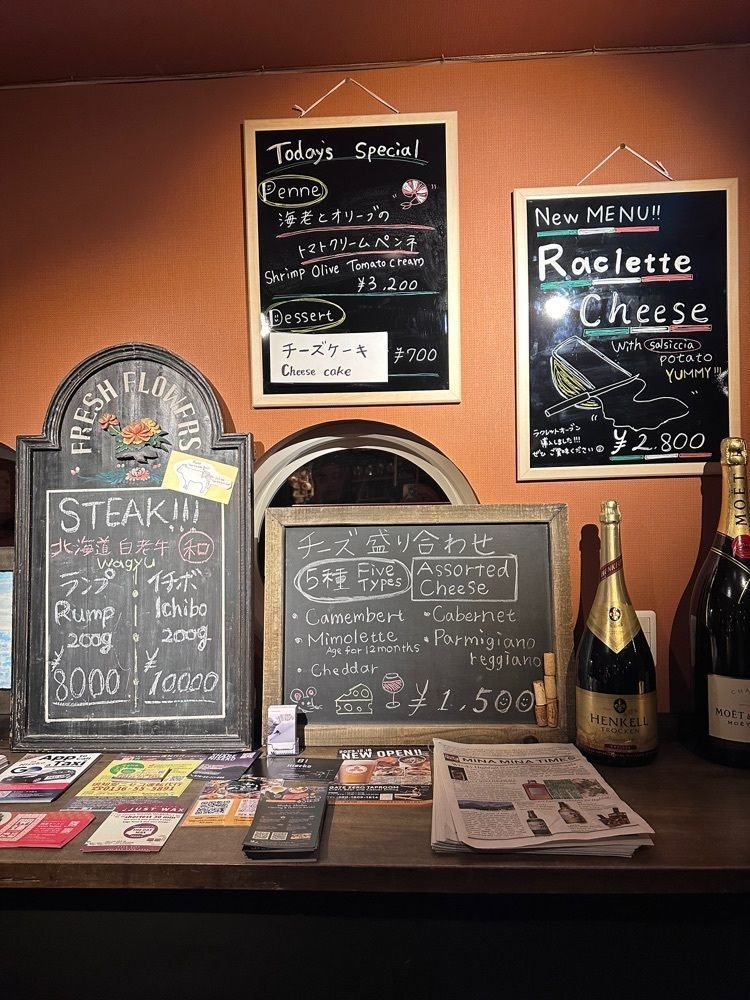 Today's Special
Penne
海老とオリーブの
トマトクリームペンネ
Shrimp Olive Tomato cream
¥3,200
Dessert
チーズケーキ
Cheese cake
¥700
New MENU!!
Raclette
Cheese
with salsiccia
potato
YUMMY!!!
ラクレットオーブン
導入しました!!!
ぜひ ご賞味ください
¥2,800
FRESH FLOWERS
STEAK!!!
北海道 白老牛 和
wagyu
ランプ
Rump
200g
¥8000
イチボ
Ichibo
200g
¥10000
チーズ盛り合わせ
5種 Five Types
Assorted Cheese
・Camembert
・Mimolette
Age for 12 months
・Cheddar
・Cabernet
・Parmigiano
reggiano
¥1,500
HENKELL
TROCKEN
MOËT
MOËT
App
Taxi
GO
0136-55-5895
JUST WAX
NEW OPEN!!
MINA MINA TIMES